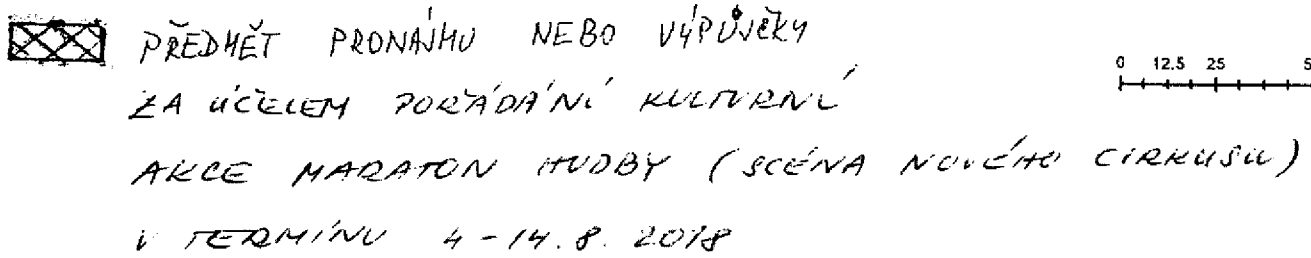 PŘEDMĚT PRONÁJMU NEBO VÝPŮJČKY
0 12.5 25 5
ZA ÚČELEM POŘÁDÁNÍ KULTURNÍ
AKCE MARATON HUDBY (SCÉNA NOVÉHO CIRKUSU)
V TERMÍNU 4-14.8.2018